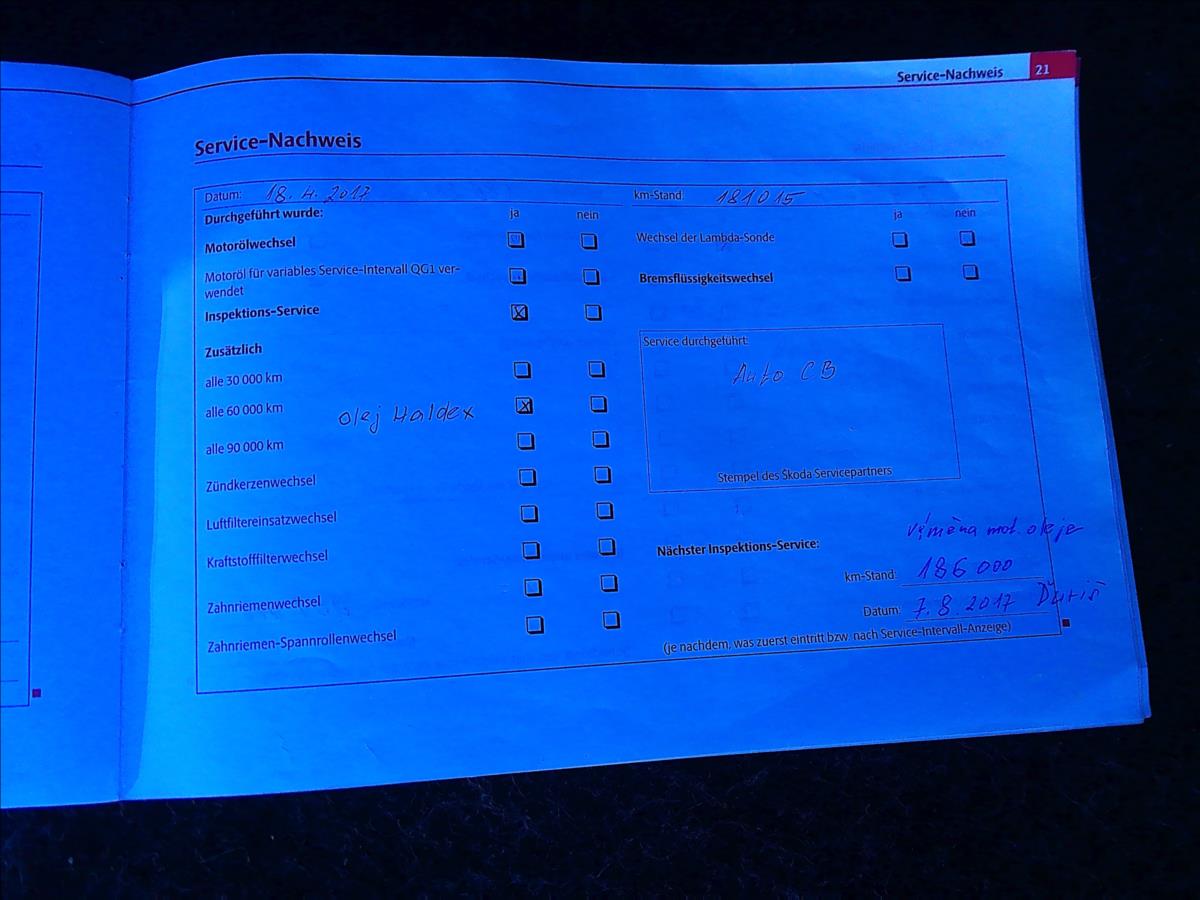 Service-Nachweis 21
Service-Nachweis
Datum: 18.4.2017
km-Stand: 181015
Durchgeführt wurde: ja nein
ja nein
Motorölwechsel
Wechsel der Lambda-Sonde
Motoröl für variables Service-Intervall QG1 ver-
wendet
Bremsflüssigkeitswechsel
Inspektions-Service
Zusätzlich
Service durchgeführt:
alle 30 000 km
Auto CB
alle 60 000 km olej Haldex
alle 90 000 km
Stempel des Škoda Servicepartners
Zündkerzenwechsel
Luftfiltereinsatzwechsel
výměna mot. oleje
Nächster Inspektions-Service:
Kraftstofffilterwechsel
km-Stand: 186 000
Zahnriemenwechsel
Datum: 7.8.2017 Ďuriš
Zahnriemen-Spannrollenwechsel
(je nachdem, was zuerst eintritt bzw. nach Service-Intervall-Anzeige)